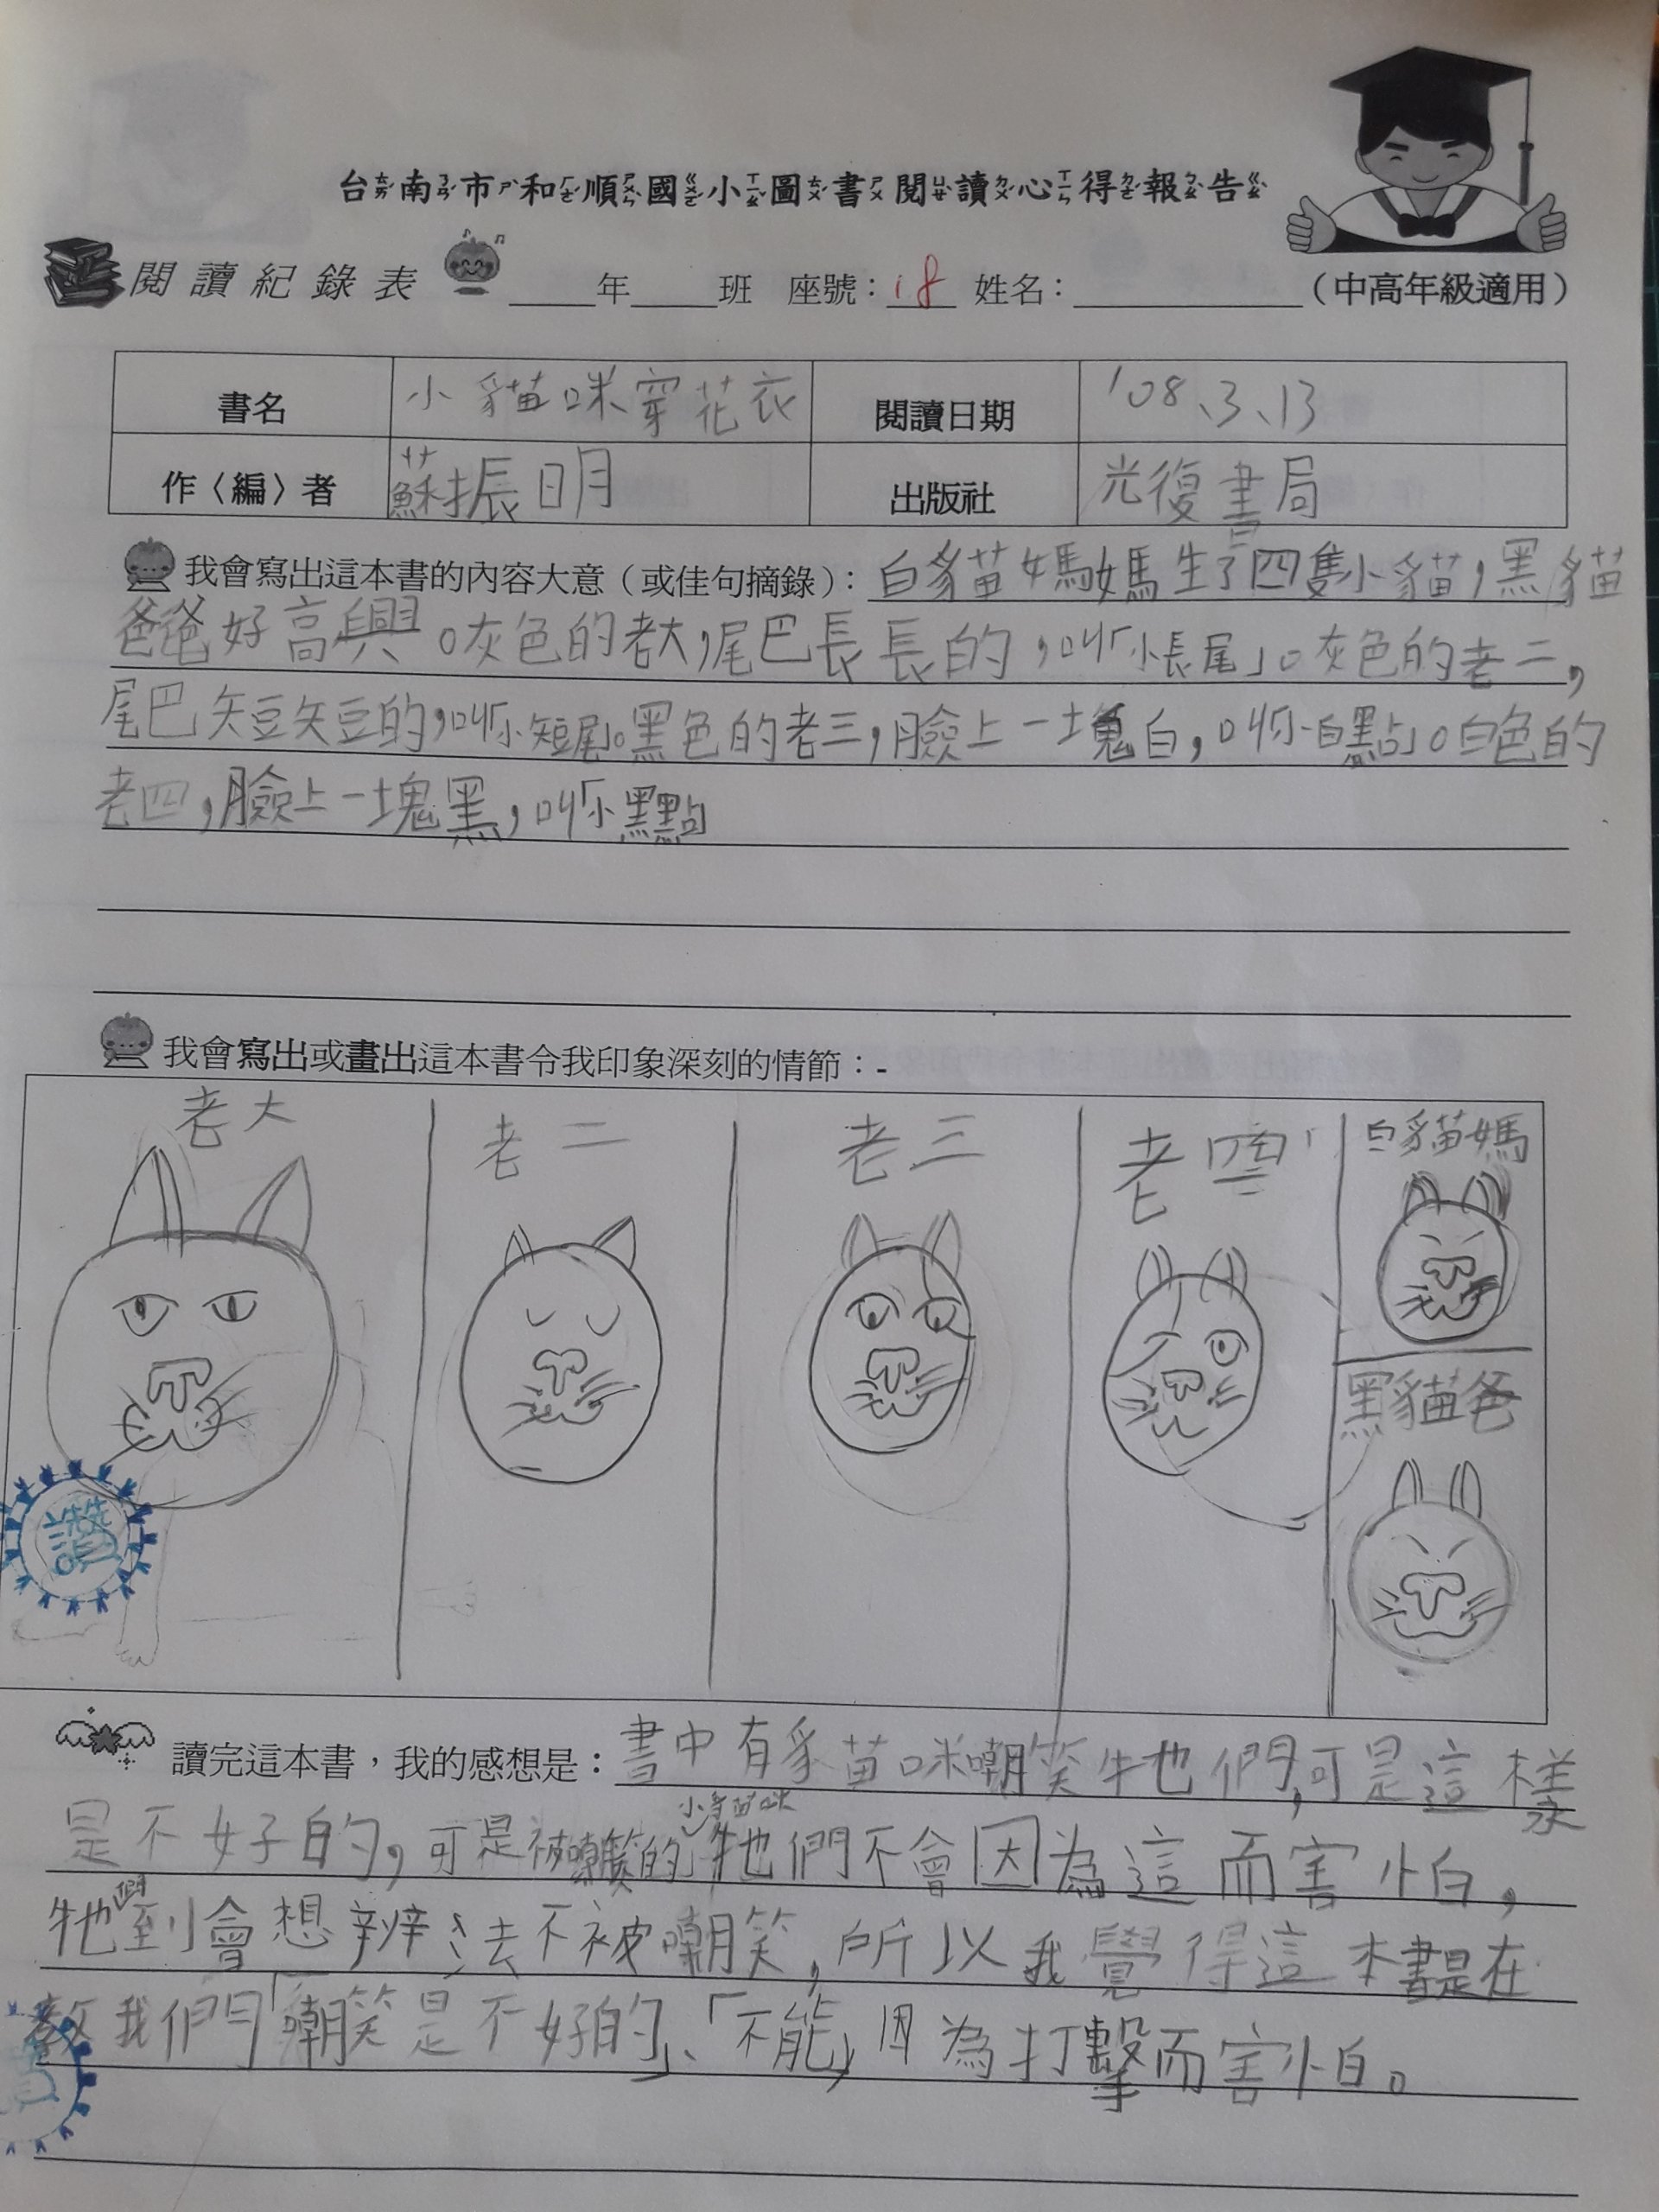 台南市和順國小圖書閱讀心得報告
閱讀紀錄表 ____年____班 座號：18 姓名：__________（中高年級適用）
書名 小貓咪穿花衣 閱讀日期 '08、3、13
作〈編〉者 蘇振明 出版社 光復書局
我會寫出這本書的內容大意（或佳句摘錄）：白貓媽媽生了四隻小貓，黑貓
爸爸好高興。灰色的老大，尾巴長長的，叫「小長尾」。灰色的老二，
尾巴短短的，叫「小短尾」。黑色的老三，臉上一塊白，叫「小白點」。白色的
老四，臉上一塊黑，叫「小黑點
我會寫出或畫出這本書令我印象深刻的情節：-
老大 老二 老三 老四 白貓媽
黑貓爸
讚
讀完這本書，我的感想是：書中有貓咪嘲笑牠們，可是這樣
是不好的，可是被嘲笑的小貓咪牠們不會因為這而害怕，
牠們到會想辦法不被嘲笑，所以我覺得這本書是在
教我們「嘲笑是不好的」、「不能」因為打擊而害怕。